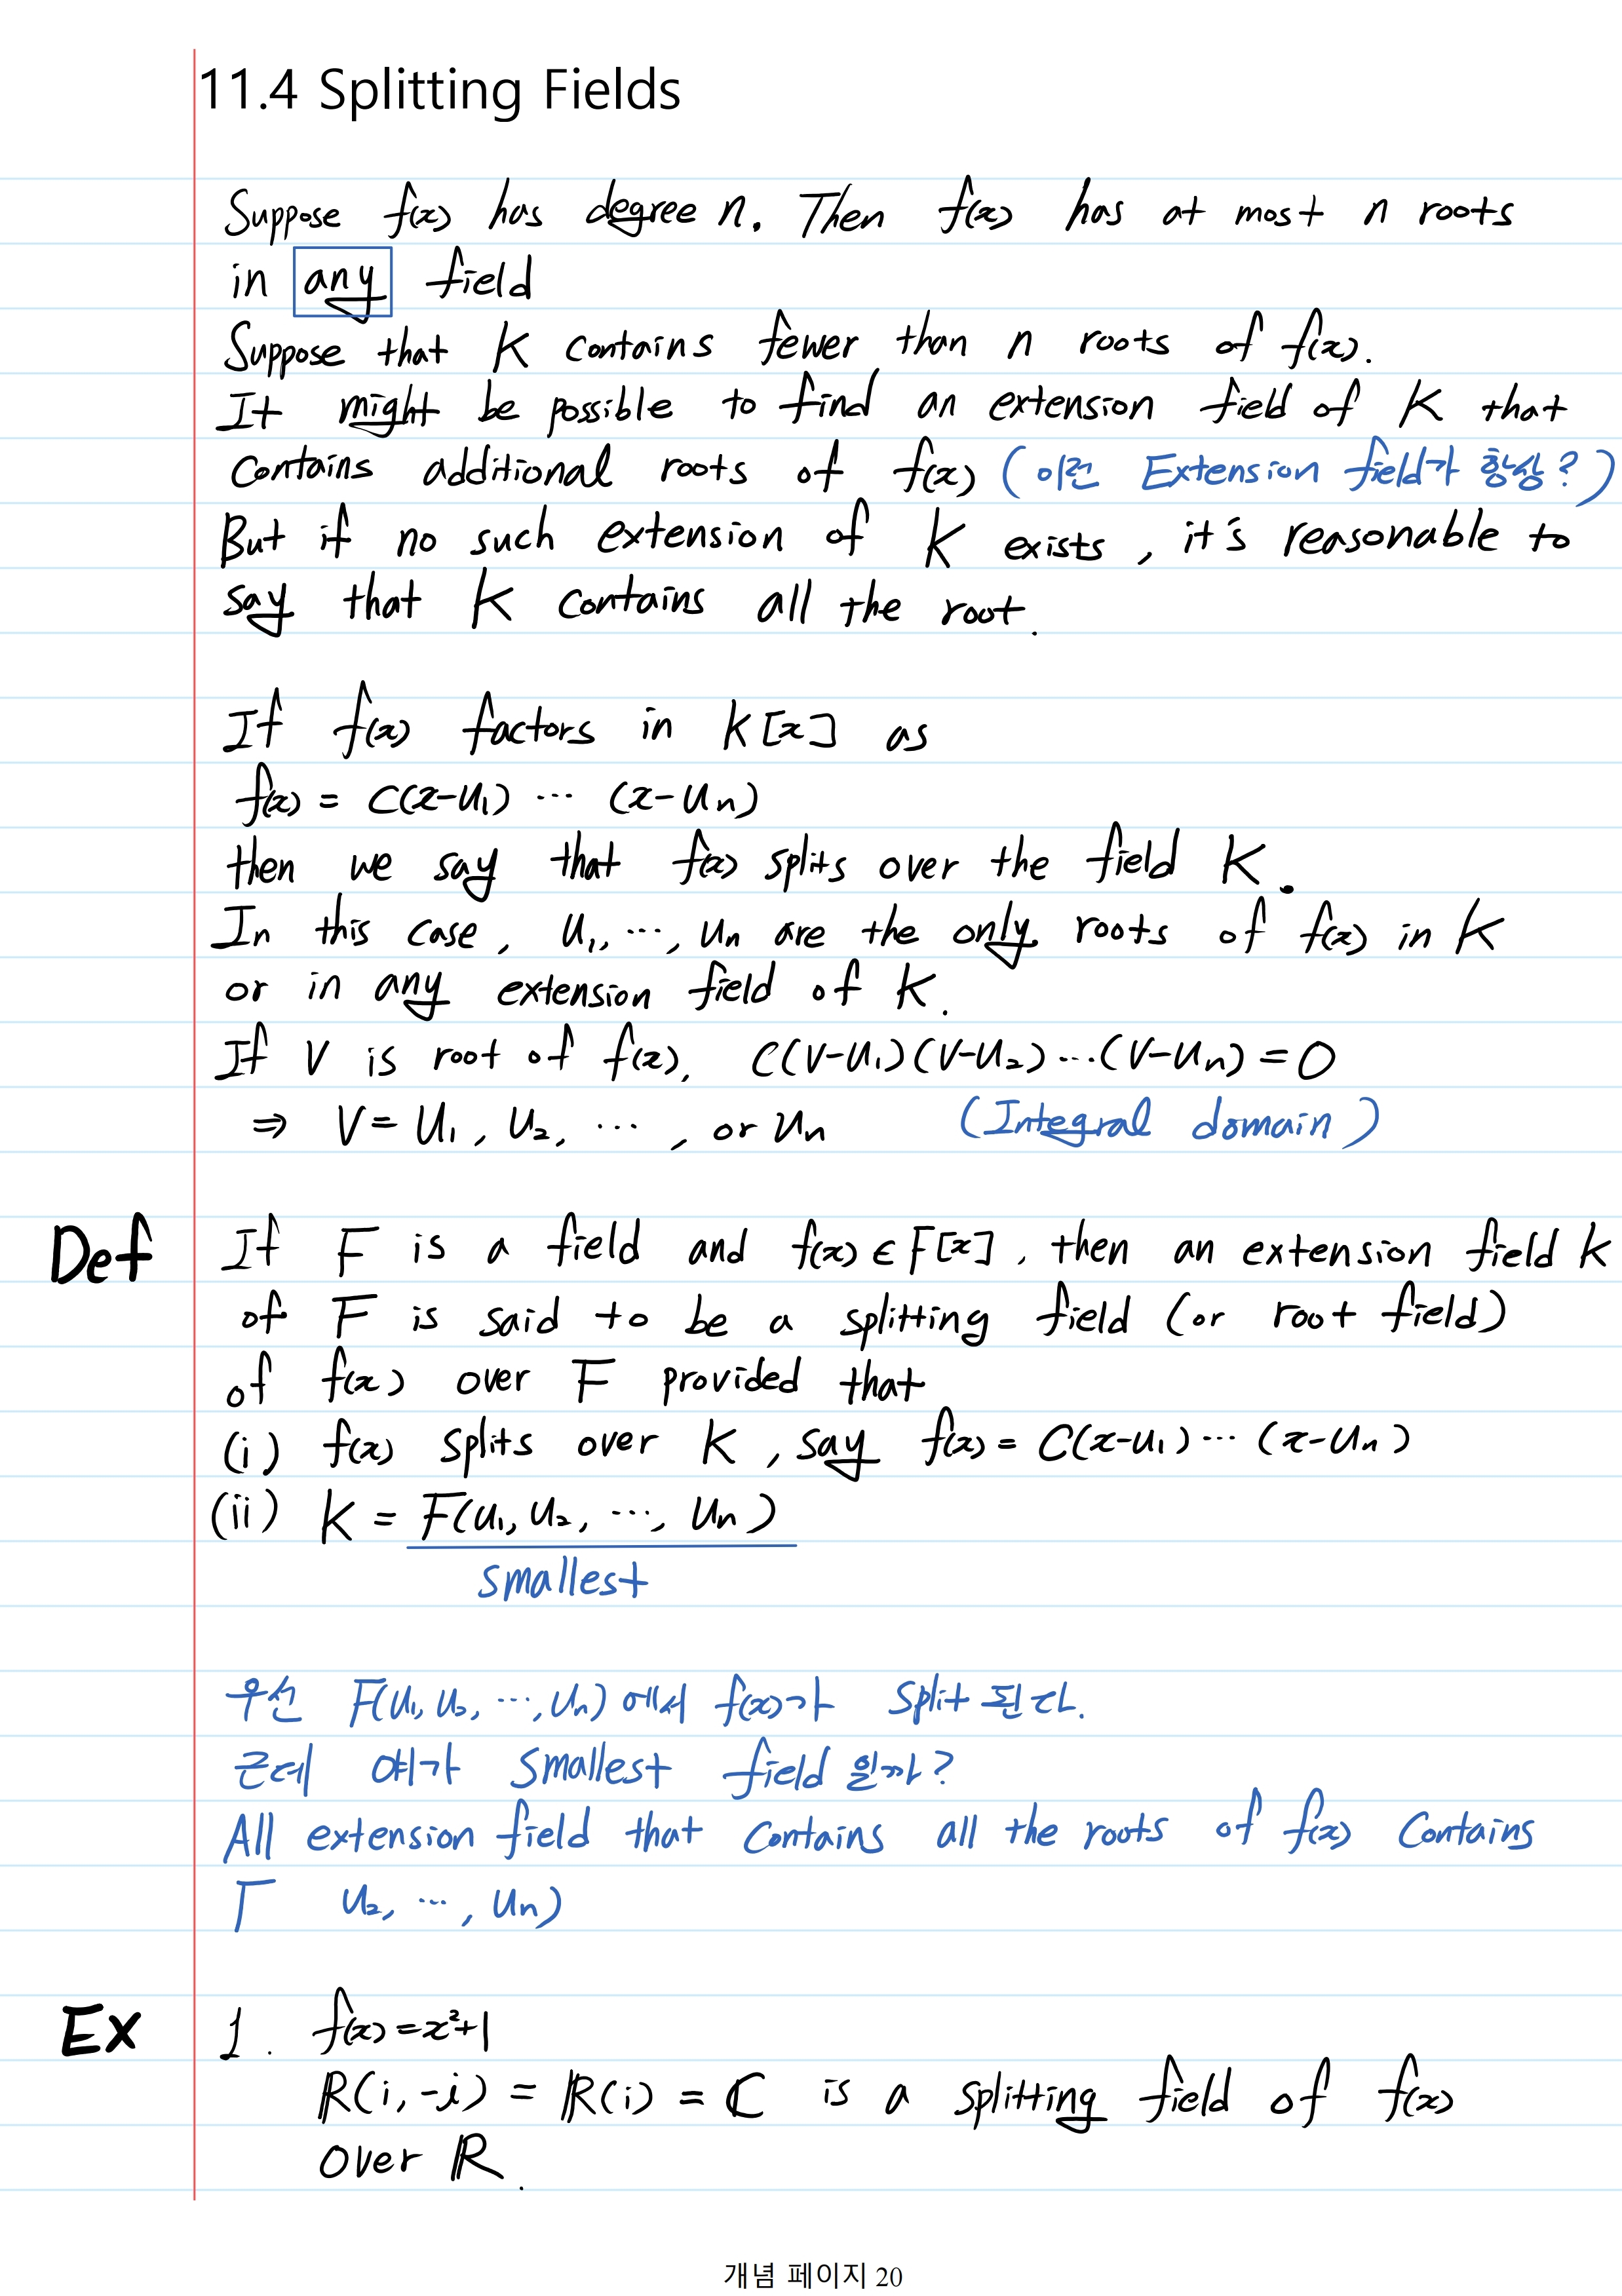 11.4 Splitting Fields
Suppose f(x) has degree n. Then f(x) has at most n roots
in any field
Suppose that K contains fewer than n roots of f(x).
It might be possible to find an extension field of K that
contains additional roots of f(x) (이런 Extension field가 항상?)
But if no such extension of K exists, it's reasonable to
say that K contains all the root.
If f(x) factors in K[x] as
f(x) = C(x-u₁) ⋯ (x-uₙ)
then we say that f(x) splits over the field K.
In this case, u₁, ⋯, uₙ are the only roots of f(x) in K
or in any extension field of K.
If V is root of f(x), C(V-u₁)(V-u₂)⋯(V-uₙ) = 0
⇒ V = u₁, u₂, ⋯, or uₙ (Integral domain)
Def If F is a field and f(x) ∈ F[x], then an extension field K
of F is said to be a splitting field (or root field)
of f(x) over F provided that
(i) f(x) splits over K, say f(x) = C(x-u₁)⋯(x-uₙ)
(ii) K = F(u₁, u₂, ⋯, uₙ)
smallest
우선 F(u₁, u₂, ⋯, uₙ)에서 f(x)가 split 된다.
근데 얘가 smallest field 일까?
All extension field that contains all the roots of f(x) contains
u₂, ⋯, uₙ)
Ex 1. f(x) = x²+1
ℝ(i, -i) = ℝ(i) = ℂ is a splitting field of f(x)
over ℝ.
개념 페이지 20